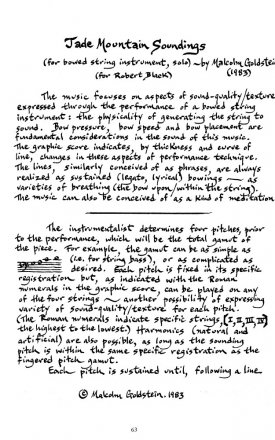 Jade Mountain Soundings
(for bowed string instrument, solo) ~ by Malcolm Goldstein
(for Robert Black) (1983)
The music focuses on aspects of sound-quality/texture
expressed through the performance of a bowed string
instrument: the physicality of generating the string to
sound. Bow pressure, bow speed and bow placement are
fundamental considerations in the sound of this music.
The graphic score indicates, by thickness and curve of
line, changes in these aspects of performance technique.
The lines, similarly conceived of as phrases, are always
realized as sustained (legato, lyrical) bowings — as
varieties of breathing (the bow upon/within the string).
The music can also be conceived of as a kind of meditation
The instrumentalist determines four pitches, prior
to the performance, which will be the total gamut of
the piece. For example, the gamut can be as simple as
(i.e. for string bass), or as complicated as
desired. Each pitch is fixed in its specific
registration but, as indicated with the Roman
numerals in the graphic score, can be played on any
of the four strings ~ another possibility of expressing
variety of sound-quality/texture for each pitch.
(The Roman numerals indicate specific strings, (I, II, III, IV)
the highest to the lowest.) Harmonics (natural and
artificial) are also possible, as long as the sounding
pitch is within the same specific registration as the
fingered pitch gamut.
Each pitch is sustained until, following a line
© Malcolm Goldstein. 1983
63